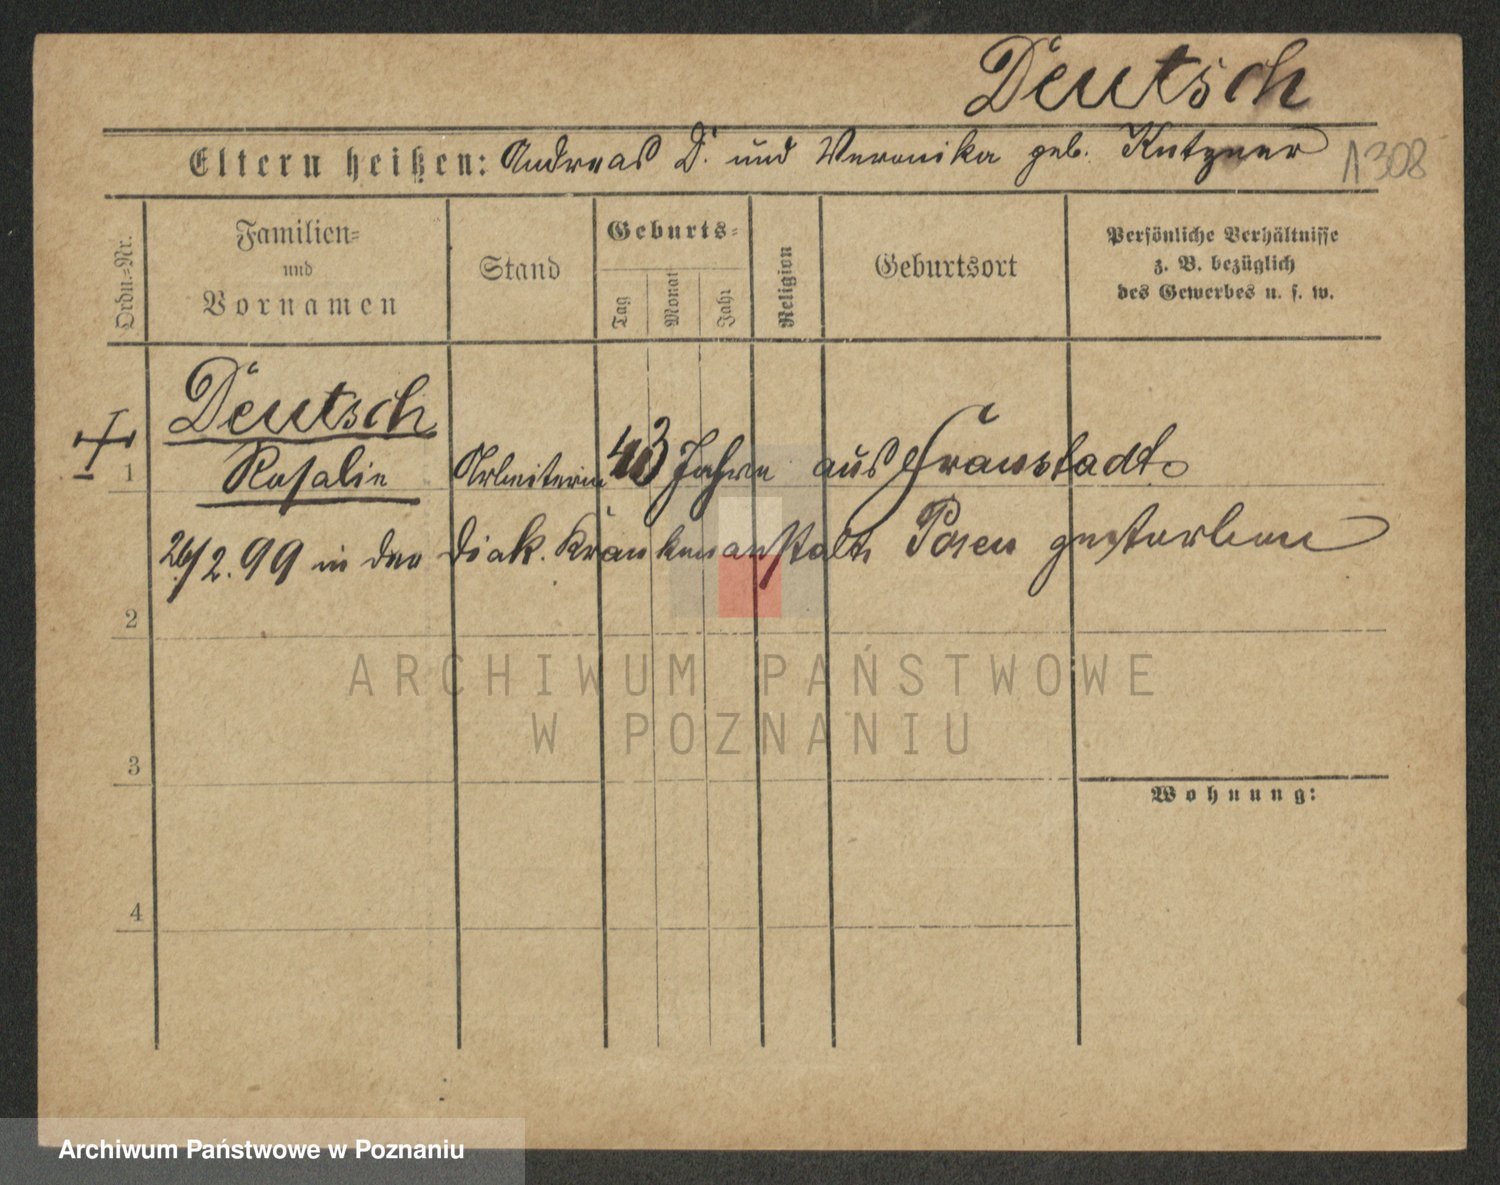 Deutsch
Eltern heißen: Andreas D. und Veronika geb. Kutzner
1308
Ordn.-Nr.
Familien-
und
Vornamen
Stand
Geburts-
Tag
Monat
Jahr
Religion
Geburtsort
Persönliche Verhältnisse
z. B. bezüglich
des Gewerbes u. s. w.
Deutsch
1 Rosalie Arbeiterin 43 Jahre aus Fraustadt.
26/2. 99 in der Diak. Krankenanstalt Posen gestorben
2
ARCHIWUM PAŃSTWOWE
W POZNANIU
3
Wohnung:
4
Archiwum Państwowe w Poznaniu